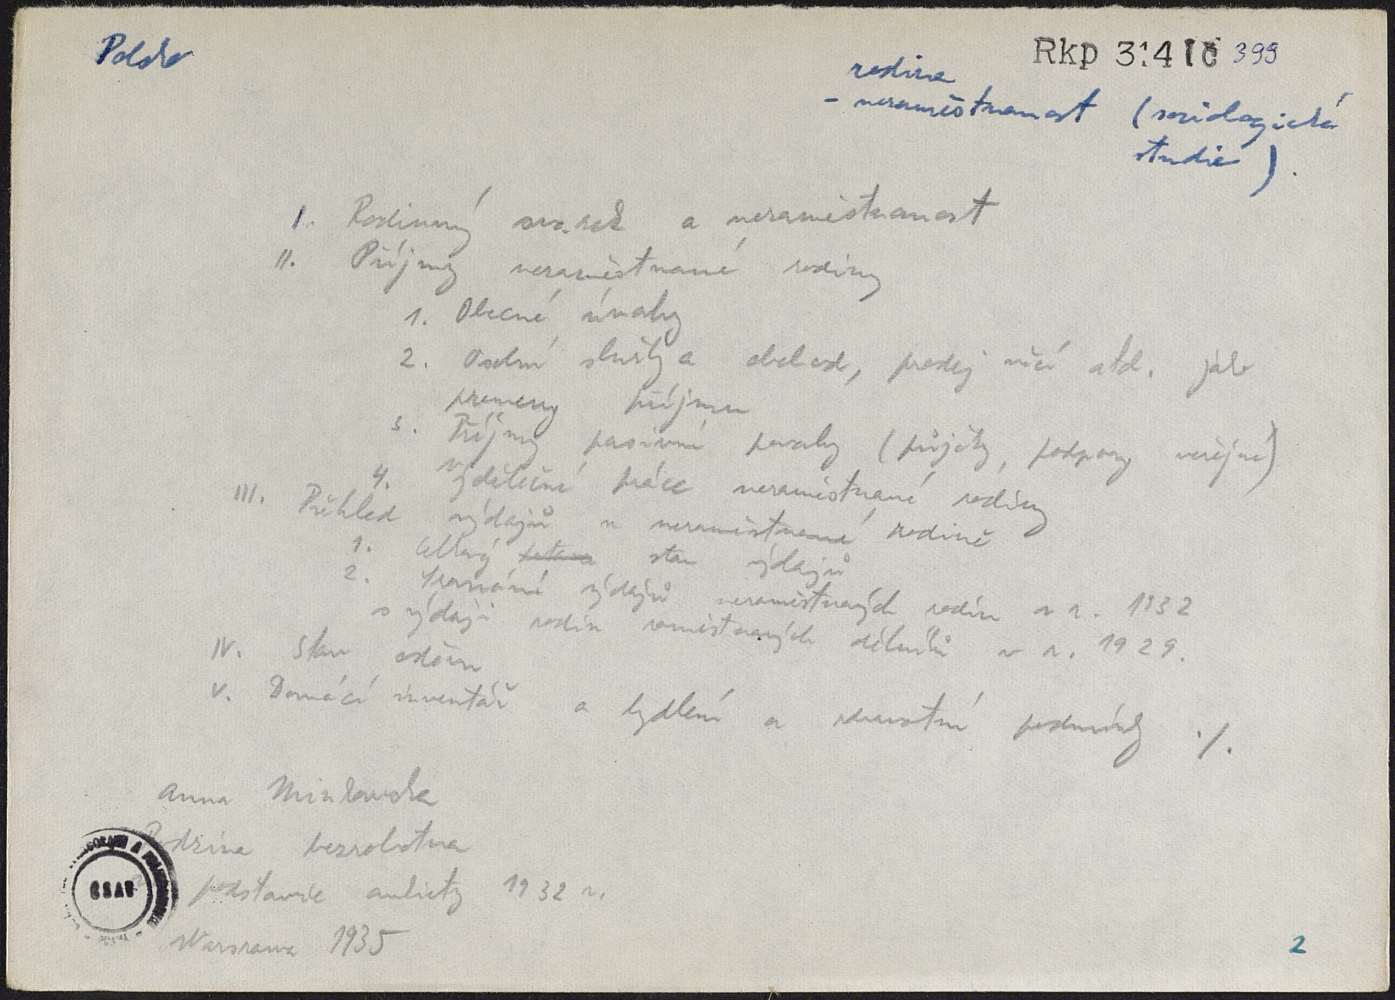 Polsko
Rkp 314 IČ 399
rodina
- nezaměstnanost (sociologická
studie).
I. Rodinný svazek a nezaměstnanost
II. Příjmy nezaměstnané rodiny
1. Obecné úvahy
2. Osobní služby a obchod, prodej věcí atd. jako
prameny příjmu
3. Příjmy pasivní povahy (půjčky, podpory veřejné)
4. Výdělečné práce nezaměstnané rodiny
III. Přehled výdajů u nezaměstnané rodině
1. Celkový stav výdajů
2. Srovnání výdajů nezaměstnaných rodin v r. 1932
s výdaji rodin zaměstnaných dělníků v r. 1929.
IV. Stav oděvu
V. Domácí inventář a bydlení a zdravotní podmínky ./.
Anna Minkowska
Rodzina bezrobotna
podstawie ankiety 1932 r.
Warszawa 1935
ČSAV
2